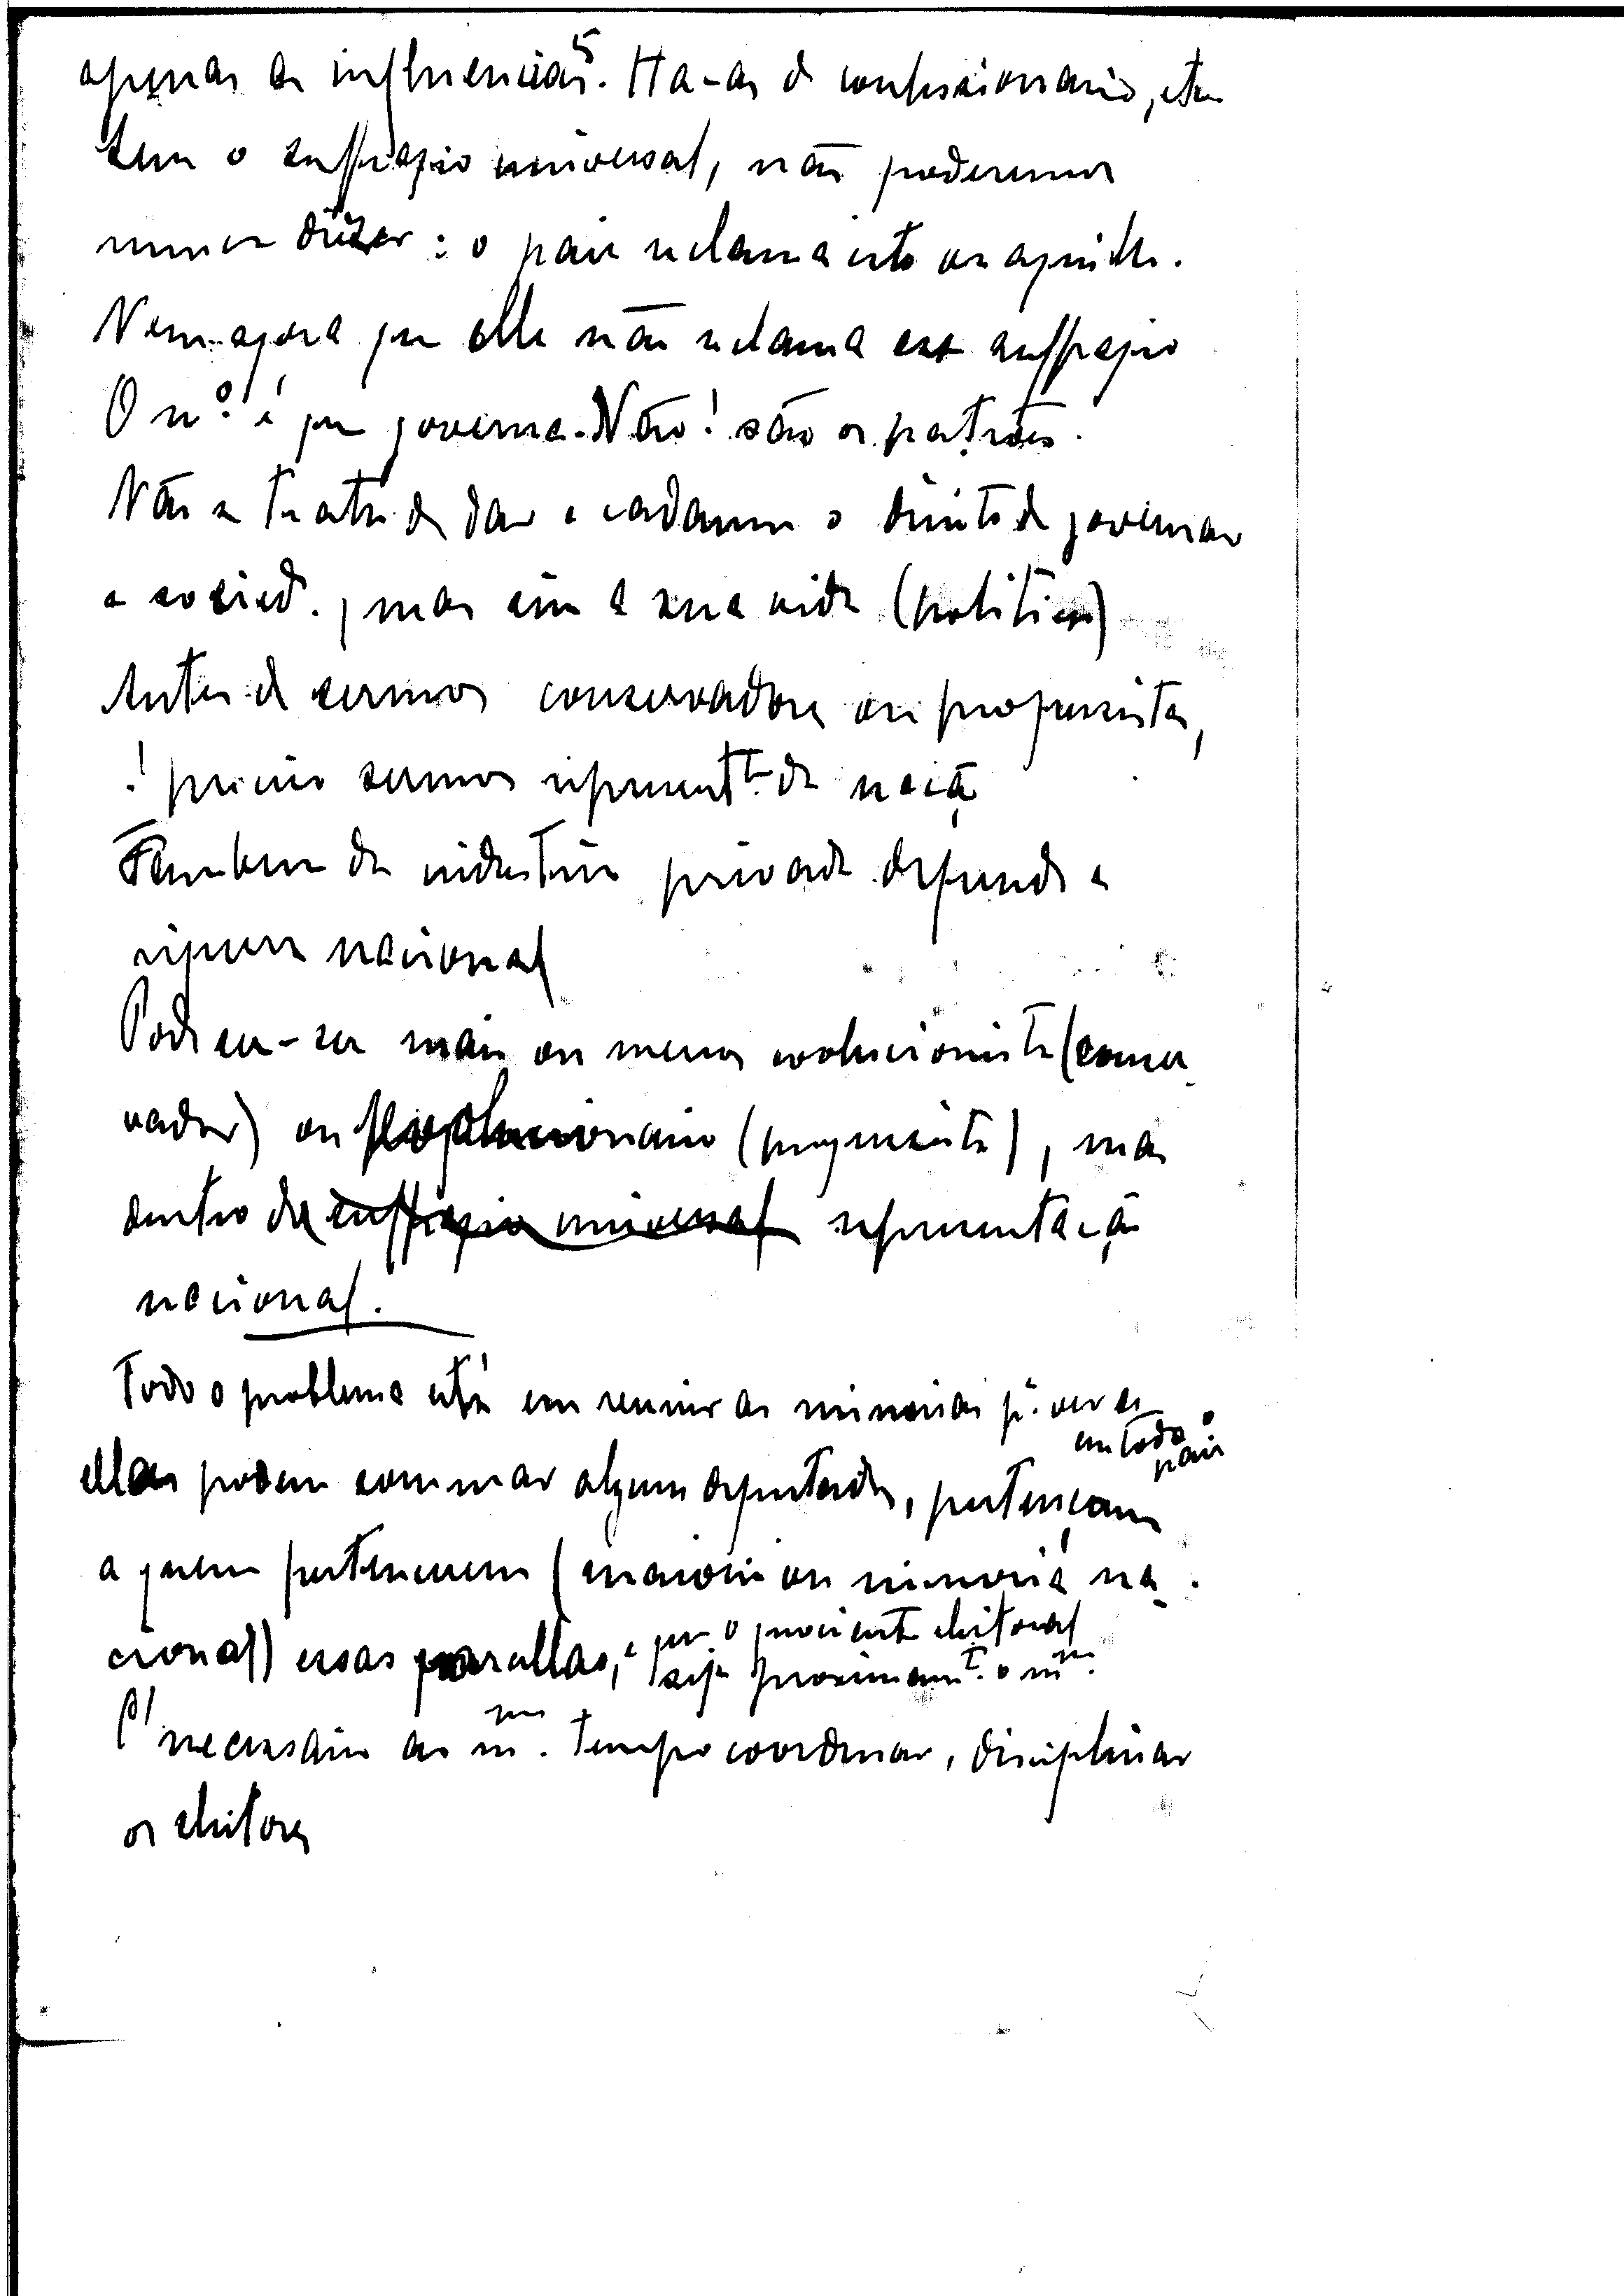 apenas as influencias. Ha-as de confessionario, etc.
Sem o suffragio universal, não poderemos
nunca dizer: o paiz reclama isto ou aquillo.
Nem agora que elle não reclama esse suffragio
O nº. é que governa. Não! são os patrões.
Não se trata de dar a cada um o direito de governar
a socied., mas sim a sua vida (politica)
Antes de sermos conservadores ou progressistas,
é preciso sermos represent.tes da nação
Tambem da industria privada depende a
riqueza nacional
Pode ser-se mais ou menos evolucionista (conser-
vador) ou revolucionario (progressista), mas
dentro da suffragio universal representação
nacional.
Todo o problema está em reunir as minorias p.ª ver se
em todo o paiz
ellas podem sommar algum deputado, pertençam
a quem pertencerem (maioria ou minoria na-
cional) essas parcellas, e que o quociente eleitoral
seja proximam.te o m.mo
É necessario ao m.mo tempo coordenar, disciplinar
os eleitores